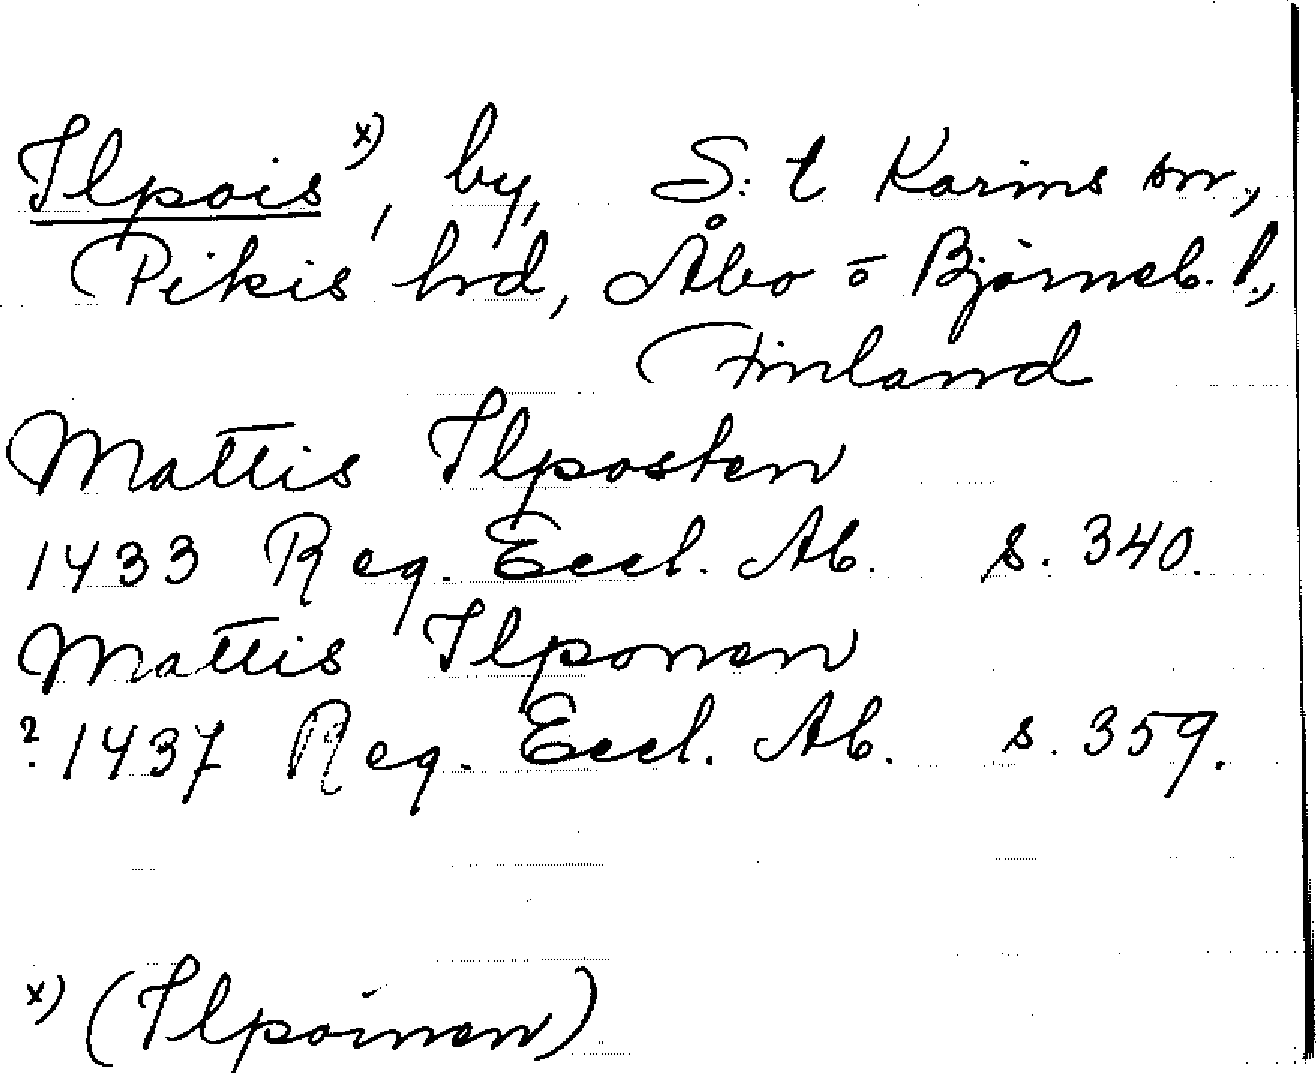 Ilpois x), by, S:t Karins sn.,
Pikis hd, Åbo o Björneb. l.,
Finland
Mattis Ilposten
1433 Reg. Eccl. Ab. s. 340.
Mattis Ilponen
? 1437 Reg. Eccl. Ab. s. 359.
x) (Ilpoinen)